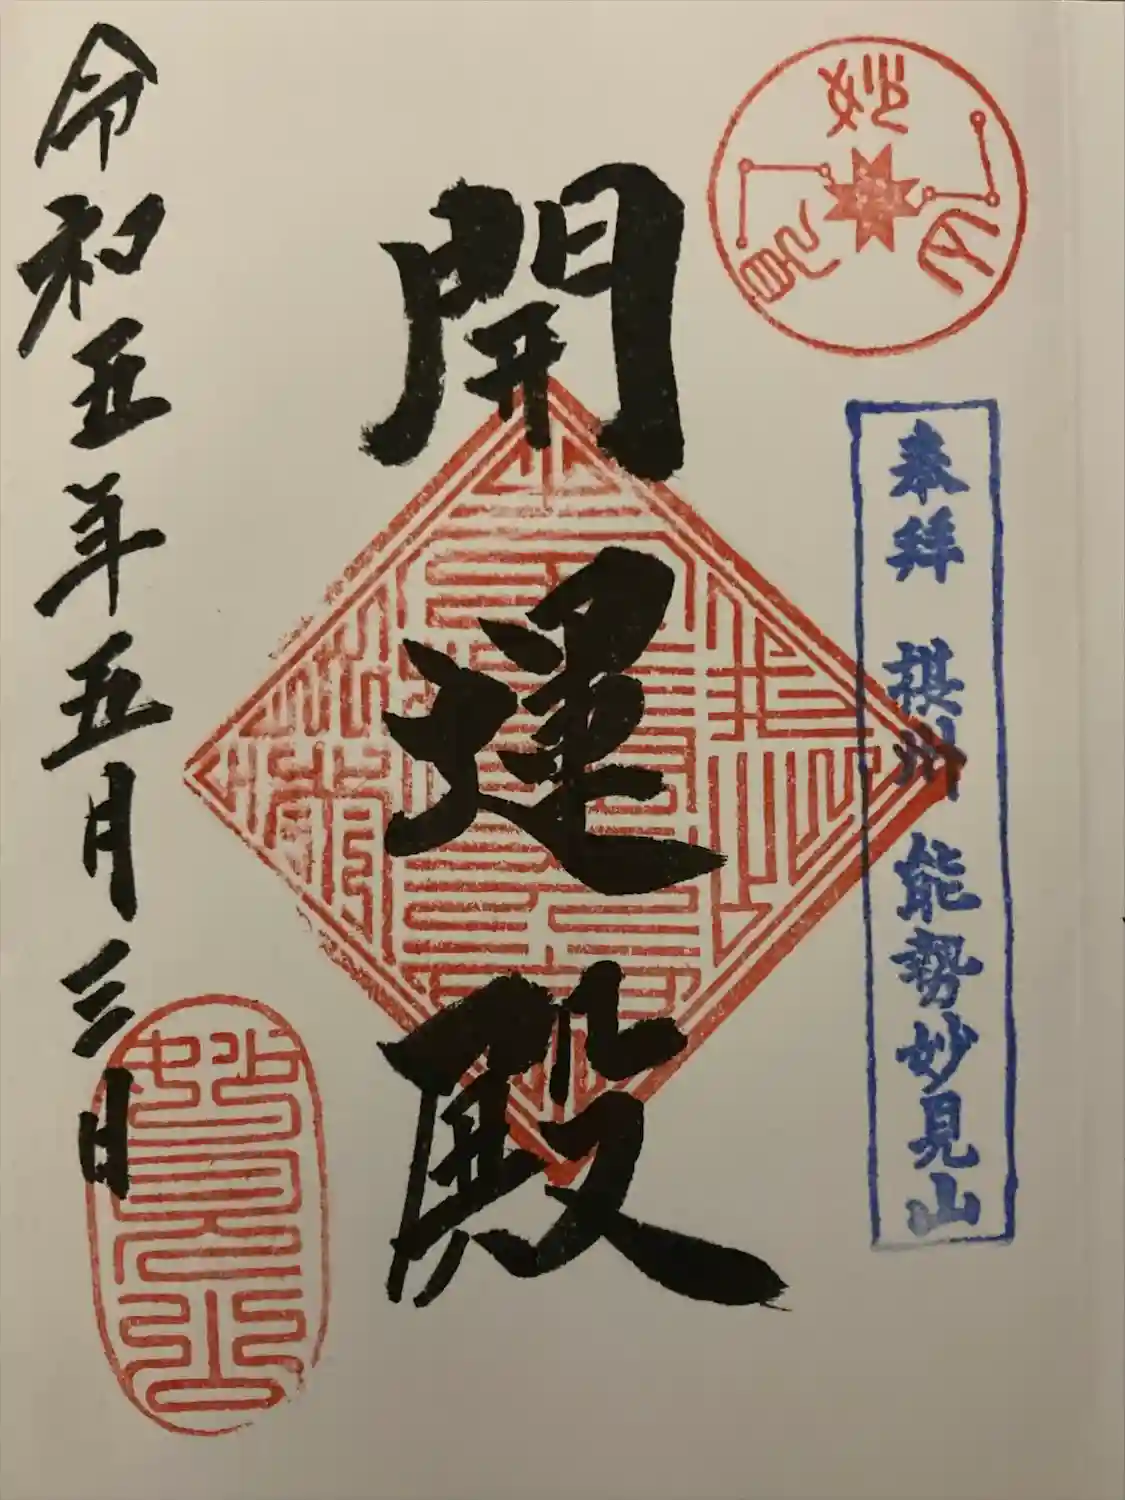 妙見山
奉拝 摂州 能勢妙見山
開運殿
令和五年五月三日